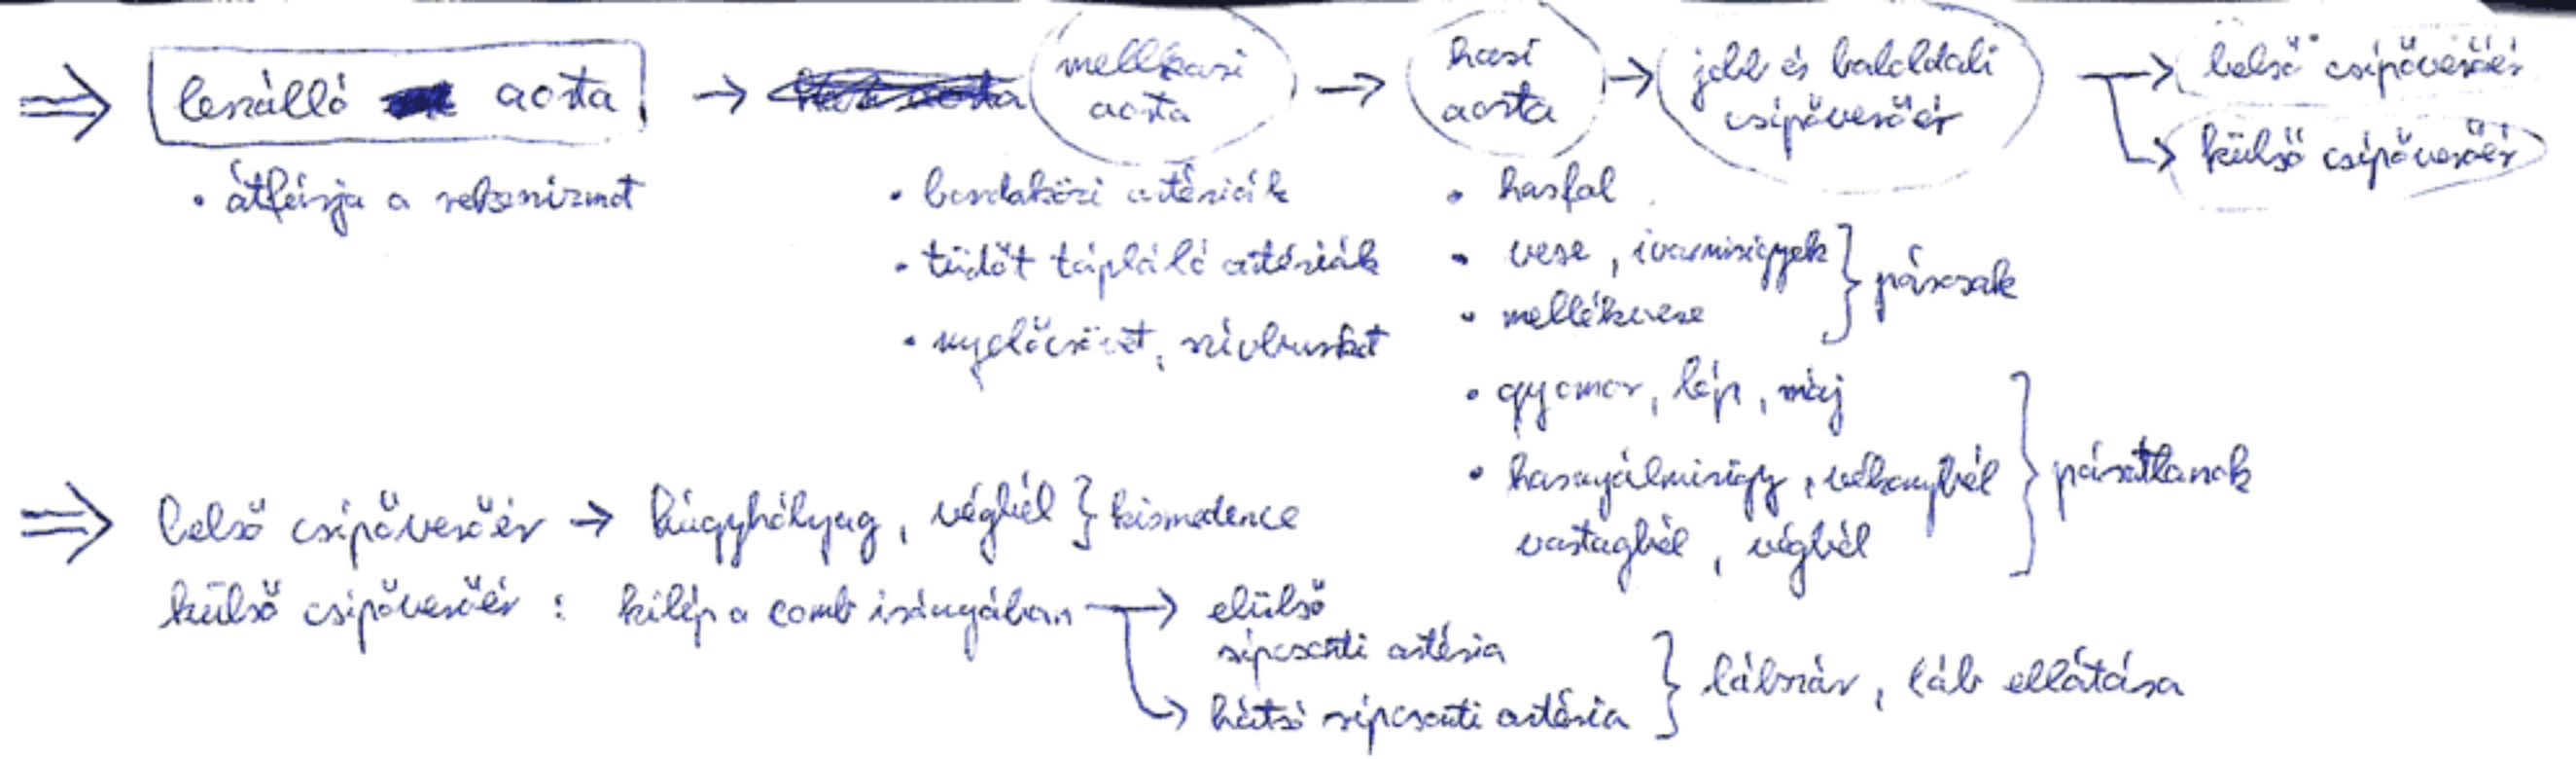 ⇒ leszálló aorta → mellkasi aorta → hasi aorta → jobb és baloldali csípőverőér → belső csípőverőér
→ külső csípőverőér
• átfúrja a rekeszizmot
• bordaközi artériák
• tüdőt tápláló artériák
• nyelőcsövet, szívburkot
• hasfal
• vese, ivarmirigyek } párosak
• mellékvese
• gyomor, lép, máj
• hasnyálmirigy, vékonybél } páratlanok
vastagbél, végbél
⇒ belső csípőverőér → húgyhólyag, végbél } kismedence
külső csípőverőér : kilép a comb irányában → elülső
sípcsonti artéria
→ hátsó sípcsonti artéria } lábszár, láb ellátása